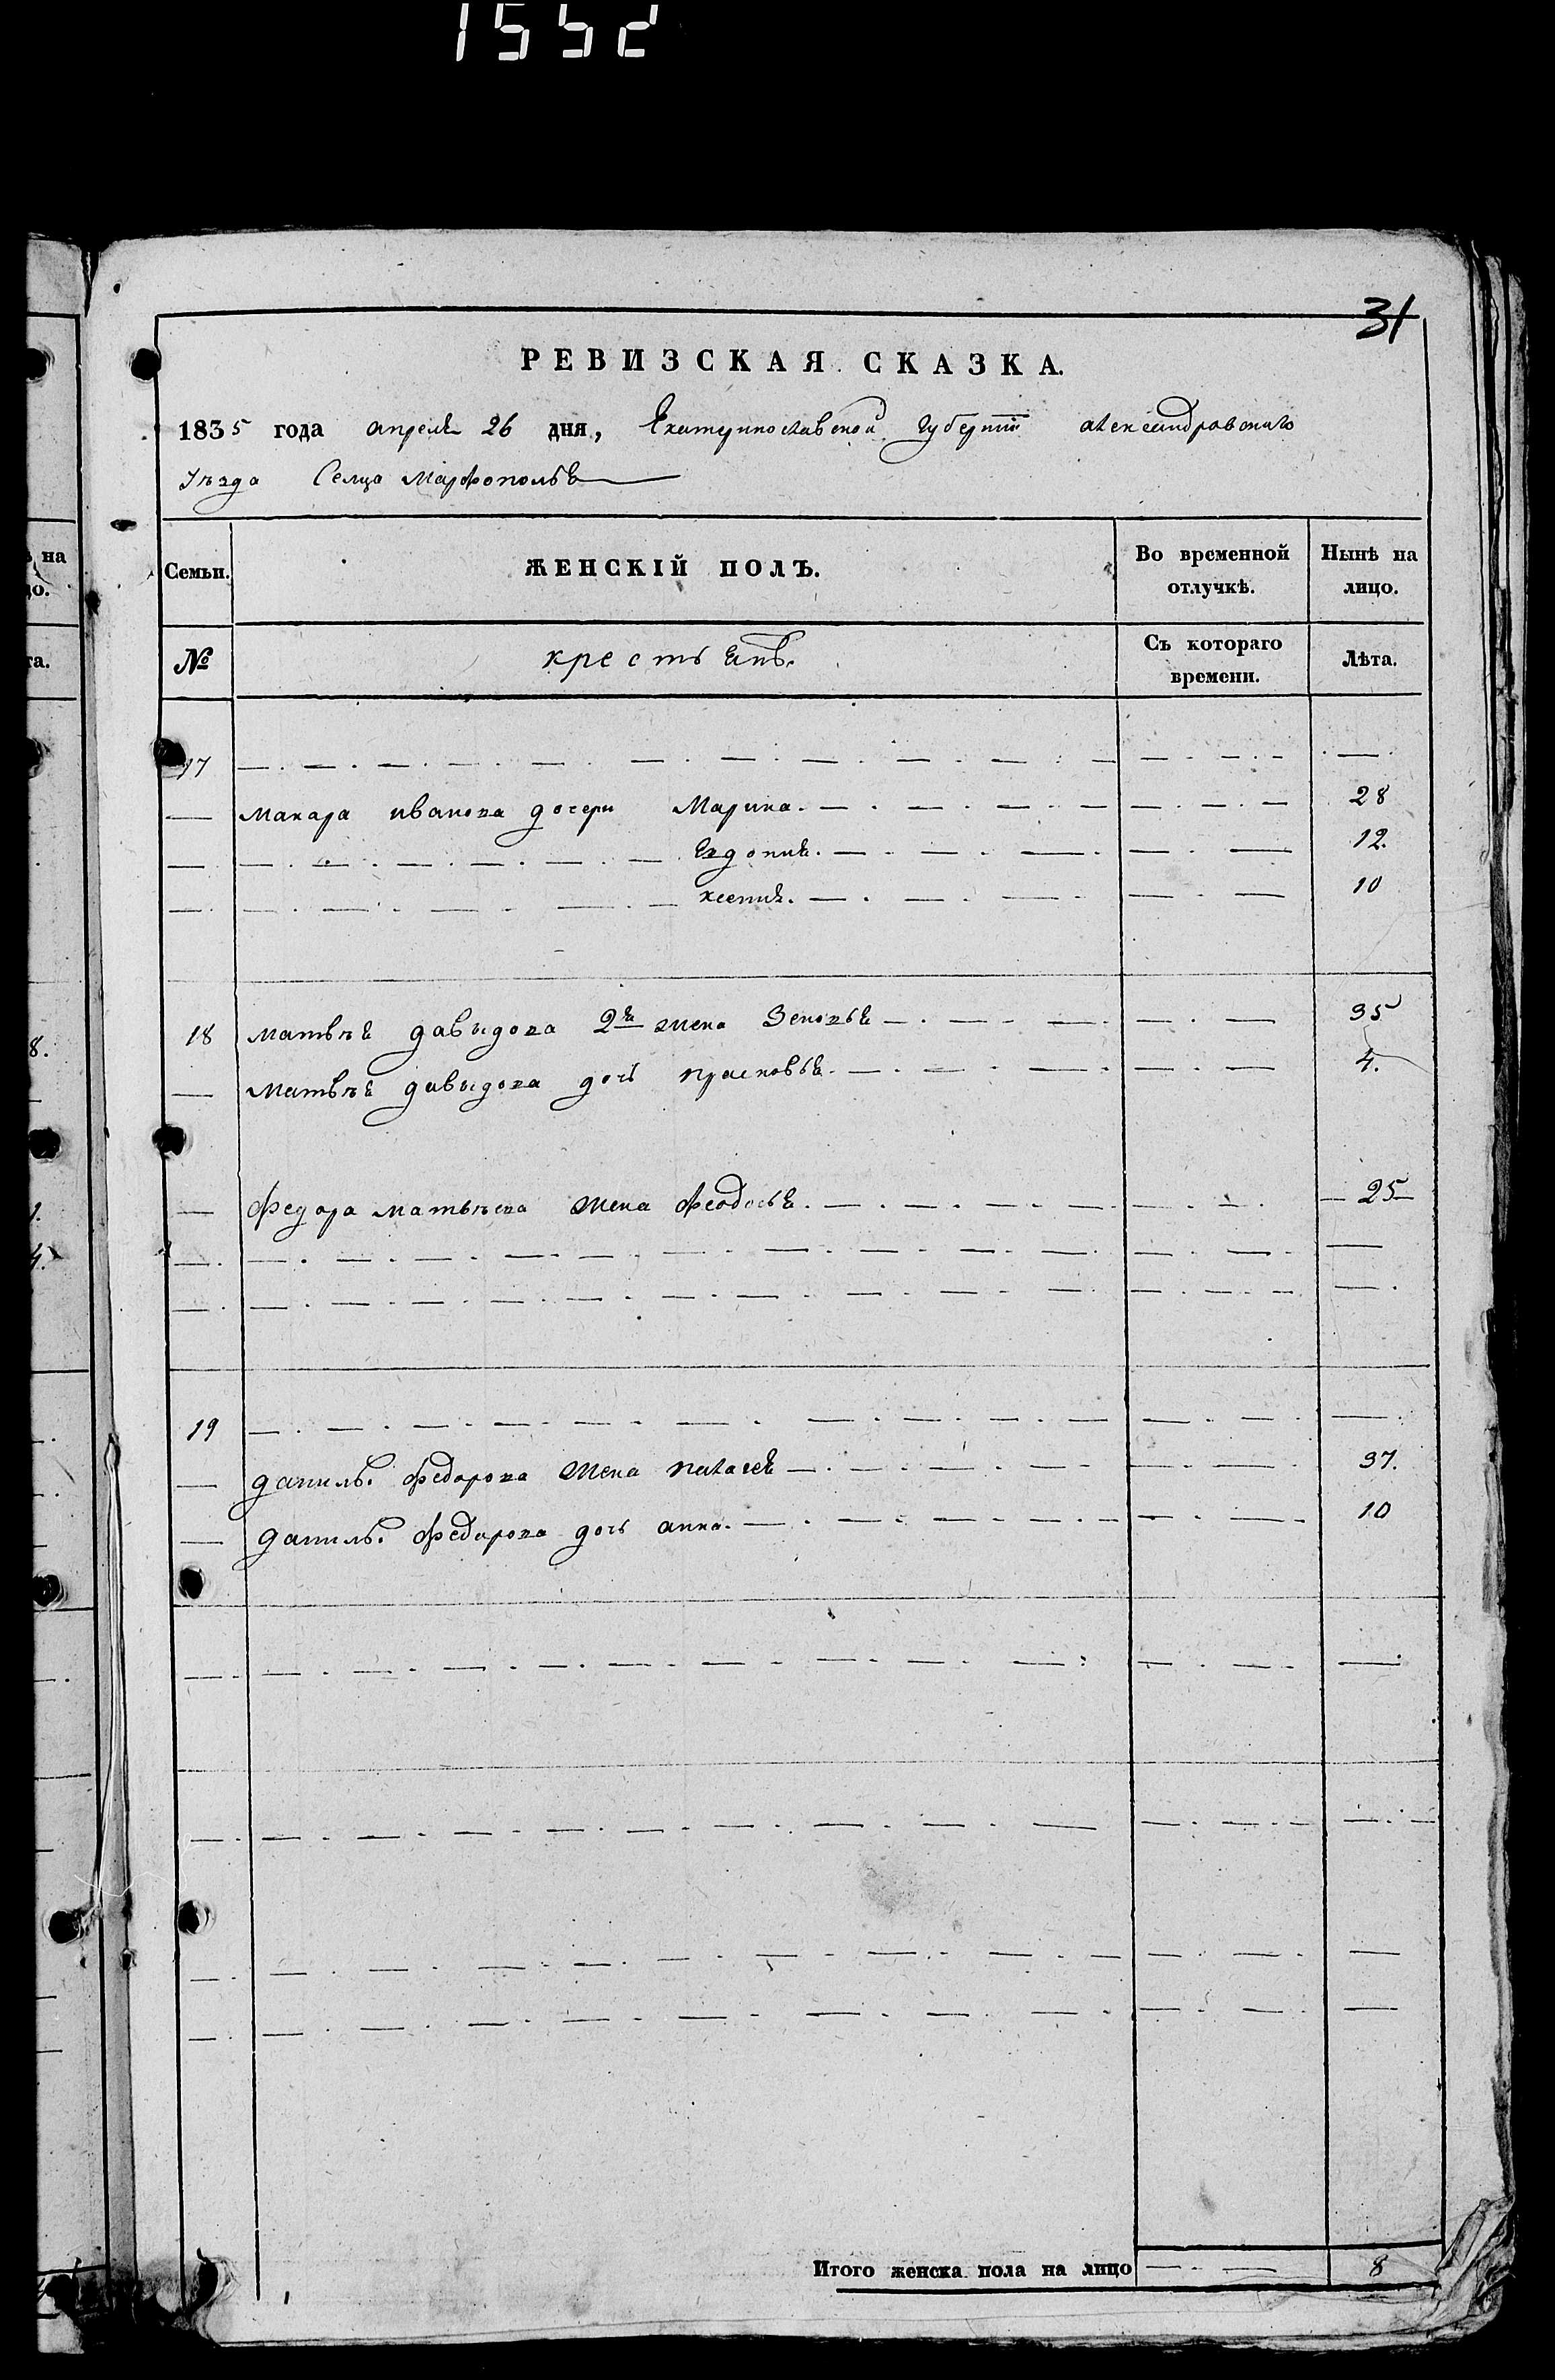 1552
31
РЕВИЗСКАЯ СКАЗКА.
1835 года апреля 26 дня, Екатериославской губерніи александровскаго
уѣзда Селца Марфополья
на
Семьи. ЖЕНСКІЙ ПОЛЪ. Во временной отлучкѣ. Нынѣ на лицо.
№ крестьянъ. Съ котораго времени. Лѣта.
17
— Макара иванова дочери Марина. 28
— Евдокия. 12.
— ксения. 10
18 матвѣя давыдова 2я жена Зеновья 35
— матвѣя давыдова дочь прасковья. 4.
— федора матвѣева жена феодосья. 25
19
— данилы федорова жена пелагея 37.
— данилы федорова дочь анна. 10
Итого женска пола на лицо 8